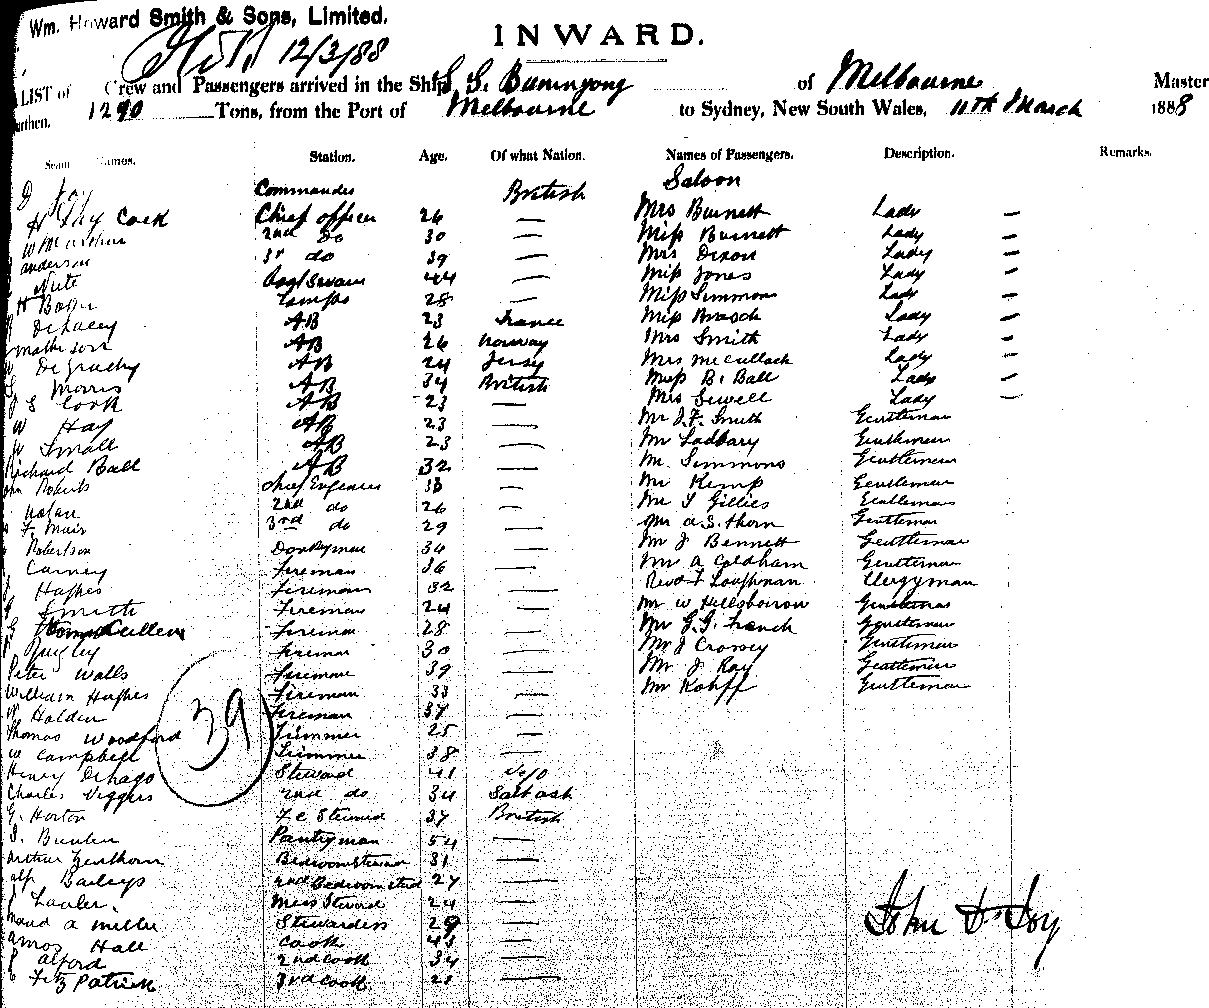 Wm. Howard Smith & Sons, Limited.
12/3/88
INWARD.
LIST of Crew and Passengers arrived in the Ship S.S. Buninyong of Melbourne Master
1290 Tons, from the Port of Melbourne to Sydney, New South Wales, 11th March 1888
Names. Station. Age. Of what Nation. Names of Passengers. Description. Remarks.
Commander British Saloon
Cock Chief officer 26 — Mrs Burnett Lady —
2nd Do 30 — Miss Burnett Lady —
anderson 3r do 39 — Mrs Dixon Lady —
44 — Miss Jones Lady —
Lamps 28 — Miss Simmons Lady —
Delacey AB 23 France Miss Brasch Lady —
AB 26 Norway Mrs Smith Lady —
DeGruchy AB 24 Jersy Mrs McCullach Lady —
Morris AB 34 British Miss B. Ball Lady —
S Cook AB 23 — Mrs Sewell Lady —
W Hay AB 23 — Mr J.F. Smith Gentleman
W Small AB 23 — Mr Ladbary Gentleman
Richard Ball AB 32 — Mr. Simmons Gentleman
Roberts Chief Engineer 38 — Mr Kemp Gentleman
Nolan 2nd do 26 — Mr T Gillies Gentleman
F Muir 3rd do 29 — Mr A.S. Thorn Gentleman
Robertson Donkeyman 34 — Mr J Bennett Gentleman
Carney Fireman 36 — Mr A Coldham Gentleman
Hughes Fireman 32 — Revd Loughnan Clergyman
Smith Fireman 24 — Mr W Hillsborrow Gentleman
Cullen Fireman 28 — Mr G.G. French Gentleman
Quigley Fireman 30 — Mr J Crowey Gentleman
Peter Walls Fireman 39 — Mr J Ray Gentleman
William Hughes Fireman 33 — Mr Rohff Gentleman
Holden Fireman 37 —
39
Thomas Woodford Trimmer 25 —
W Campbell Trimmer 38 —
Henry Steward 41
Charles Viggers 2nd do 34 Saltash
G. Horton F C Steward 37 British
Pantryman 54 —
Arthur Bedroom Steward 31 —
Alf Baileys 2nd Bedroom Stwd 27 —
Lawler Mess Steward 24 —
Maud A Miller Stewardess 29 —
Amos Hall Cook 43 —
Alford 2nd Cook 34 —
FitzPatrick 3rd Cook —
John D. Joy